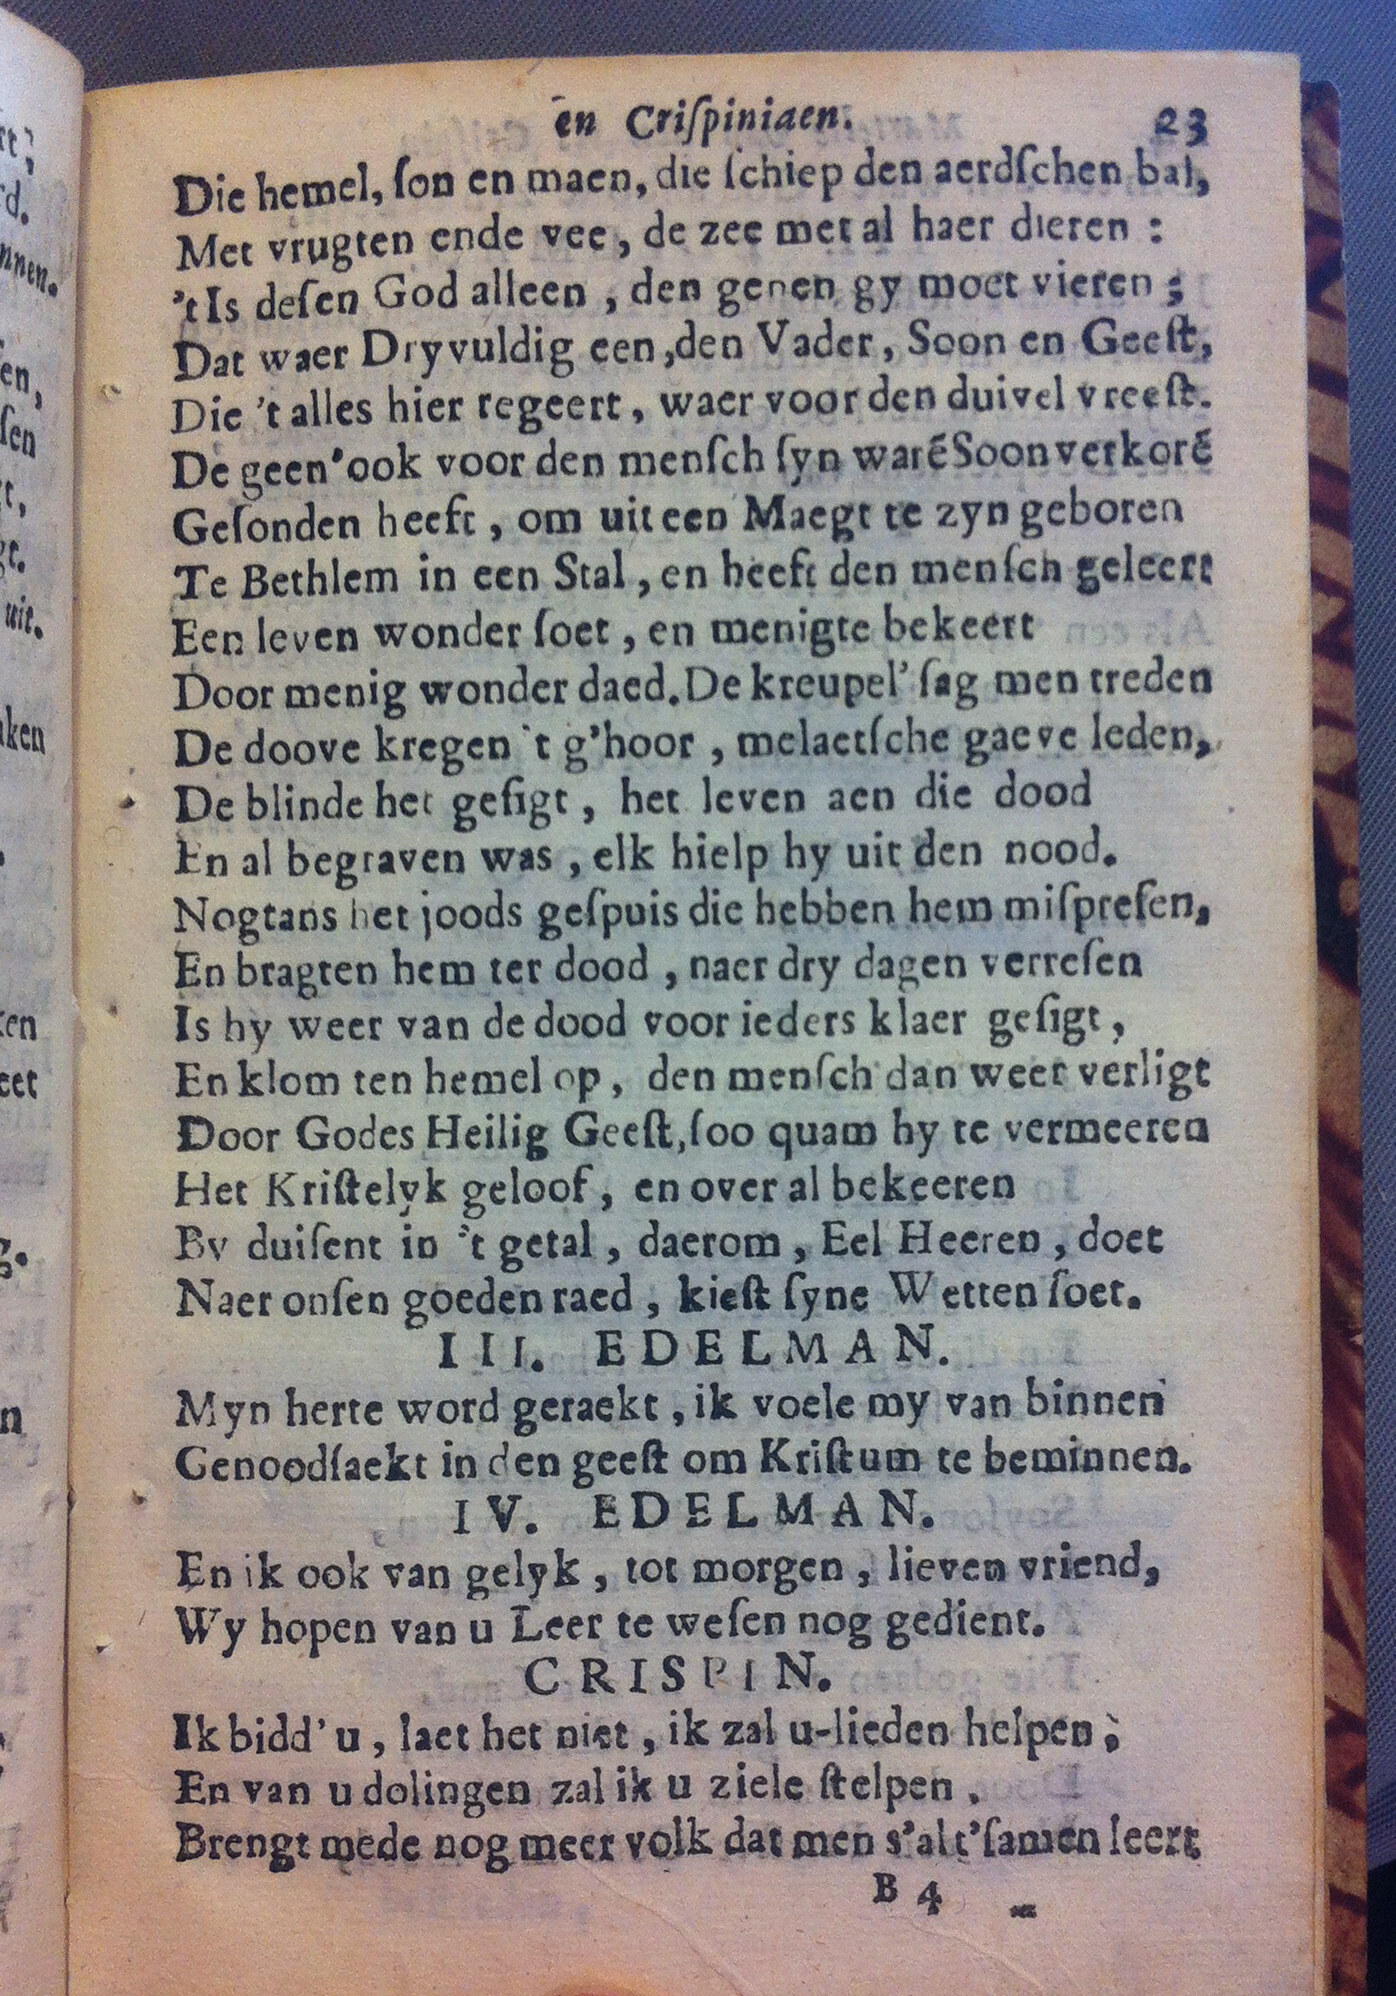 en Criſpiniaen. 23
Die hemel, ſon en maen, die ſchiep den aerdſchen bal,
Met vrugten ende vee, de zee met al haer dieren :
’t Is deſen God alleen, den genen gy moet vieren ;
Dat waer Dryvuldig een, den Vader, Soon en Geeſt,
Die ’t alles hier regeert, waer voor den duivel vreeſt.
De geen’ ook voor den menſch ſyn waré Soon verkoré
Geſonden heeft, om uit een Maegt te zyn geboren
Te Bethlem in een Stal, en heeft den menſch geleert
Een leven wonder ſoet, en menigte bekeert
Door menig wonder daed. De kreupel’ ſag men treden
De doove kregen ’t g’hoor, melaetſche gaeve leden,
De blinde het geſigt, het leven aen die dood
En al begraven was, elk hielp hy uit den nood.
Nogtans het joods geſpuis die hebben hem miſpreſen,
En bragten hem ter dood, naer dry dagen verreſen
Is hy weer van de dood voor ieders klaer geſigt,
En klom ten hemel op, den menſch dan weer verligt
Door Godes Heilig Geeſt, ſoo quam hy te vermeeren
Het Kriſtelyk geloof, en over al bekeeren
By duiſent in ’t getal, daerom, Eel Heeren, doet
Naer onſen goeden raed, kieſt ſyne Wetten ſoet.
III. EDELMAN.
Myn herte word geraekt, ik voele my van binnen
Genoodſaekt in den geeſt om Kriſtum te beminnen.
IV. EDELMAN.
En ik ook van gelyk, tot morgen, lieven vriend,
Wy hopen van u Leer te weſen nog gedient.
CRISPIN.
Ik bidd’ u, laet het niet, ik zal u-lieden helpen ;
En van u dolingen zal ik u ziele ſtelpen.
Brengt mede nog meer volk dat men s’al t’ſamen leert
B 4
rt;
'd.
nnen.
en,
ſen
t,
gt.
uit.
ken
ken
eet
g.
n